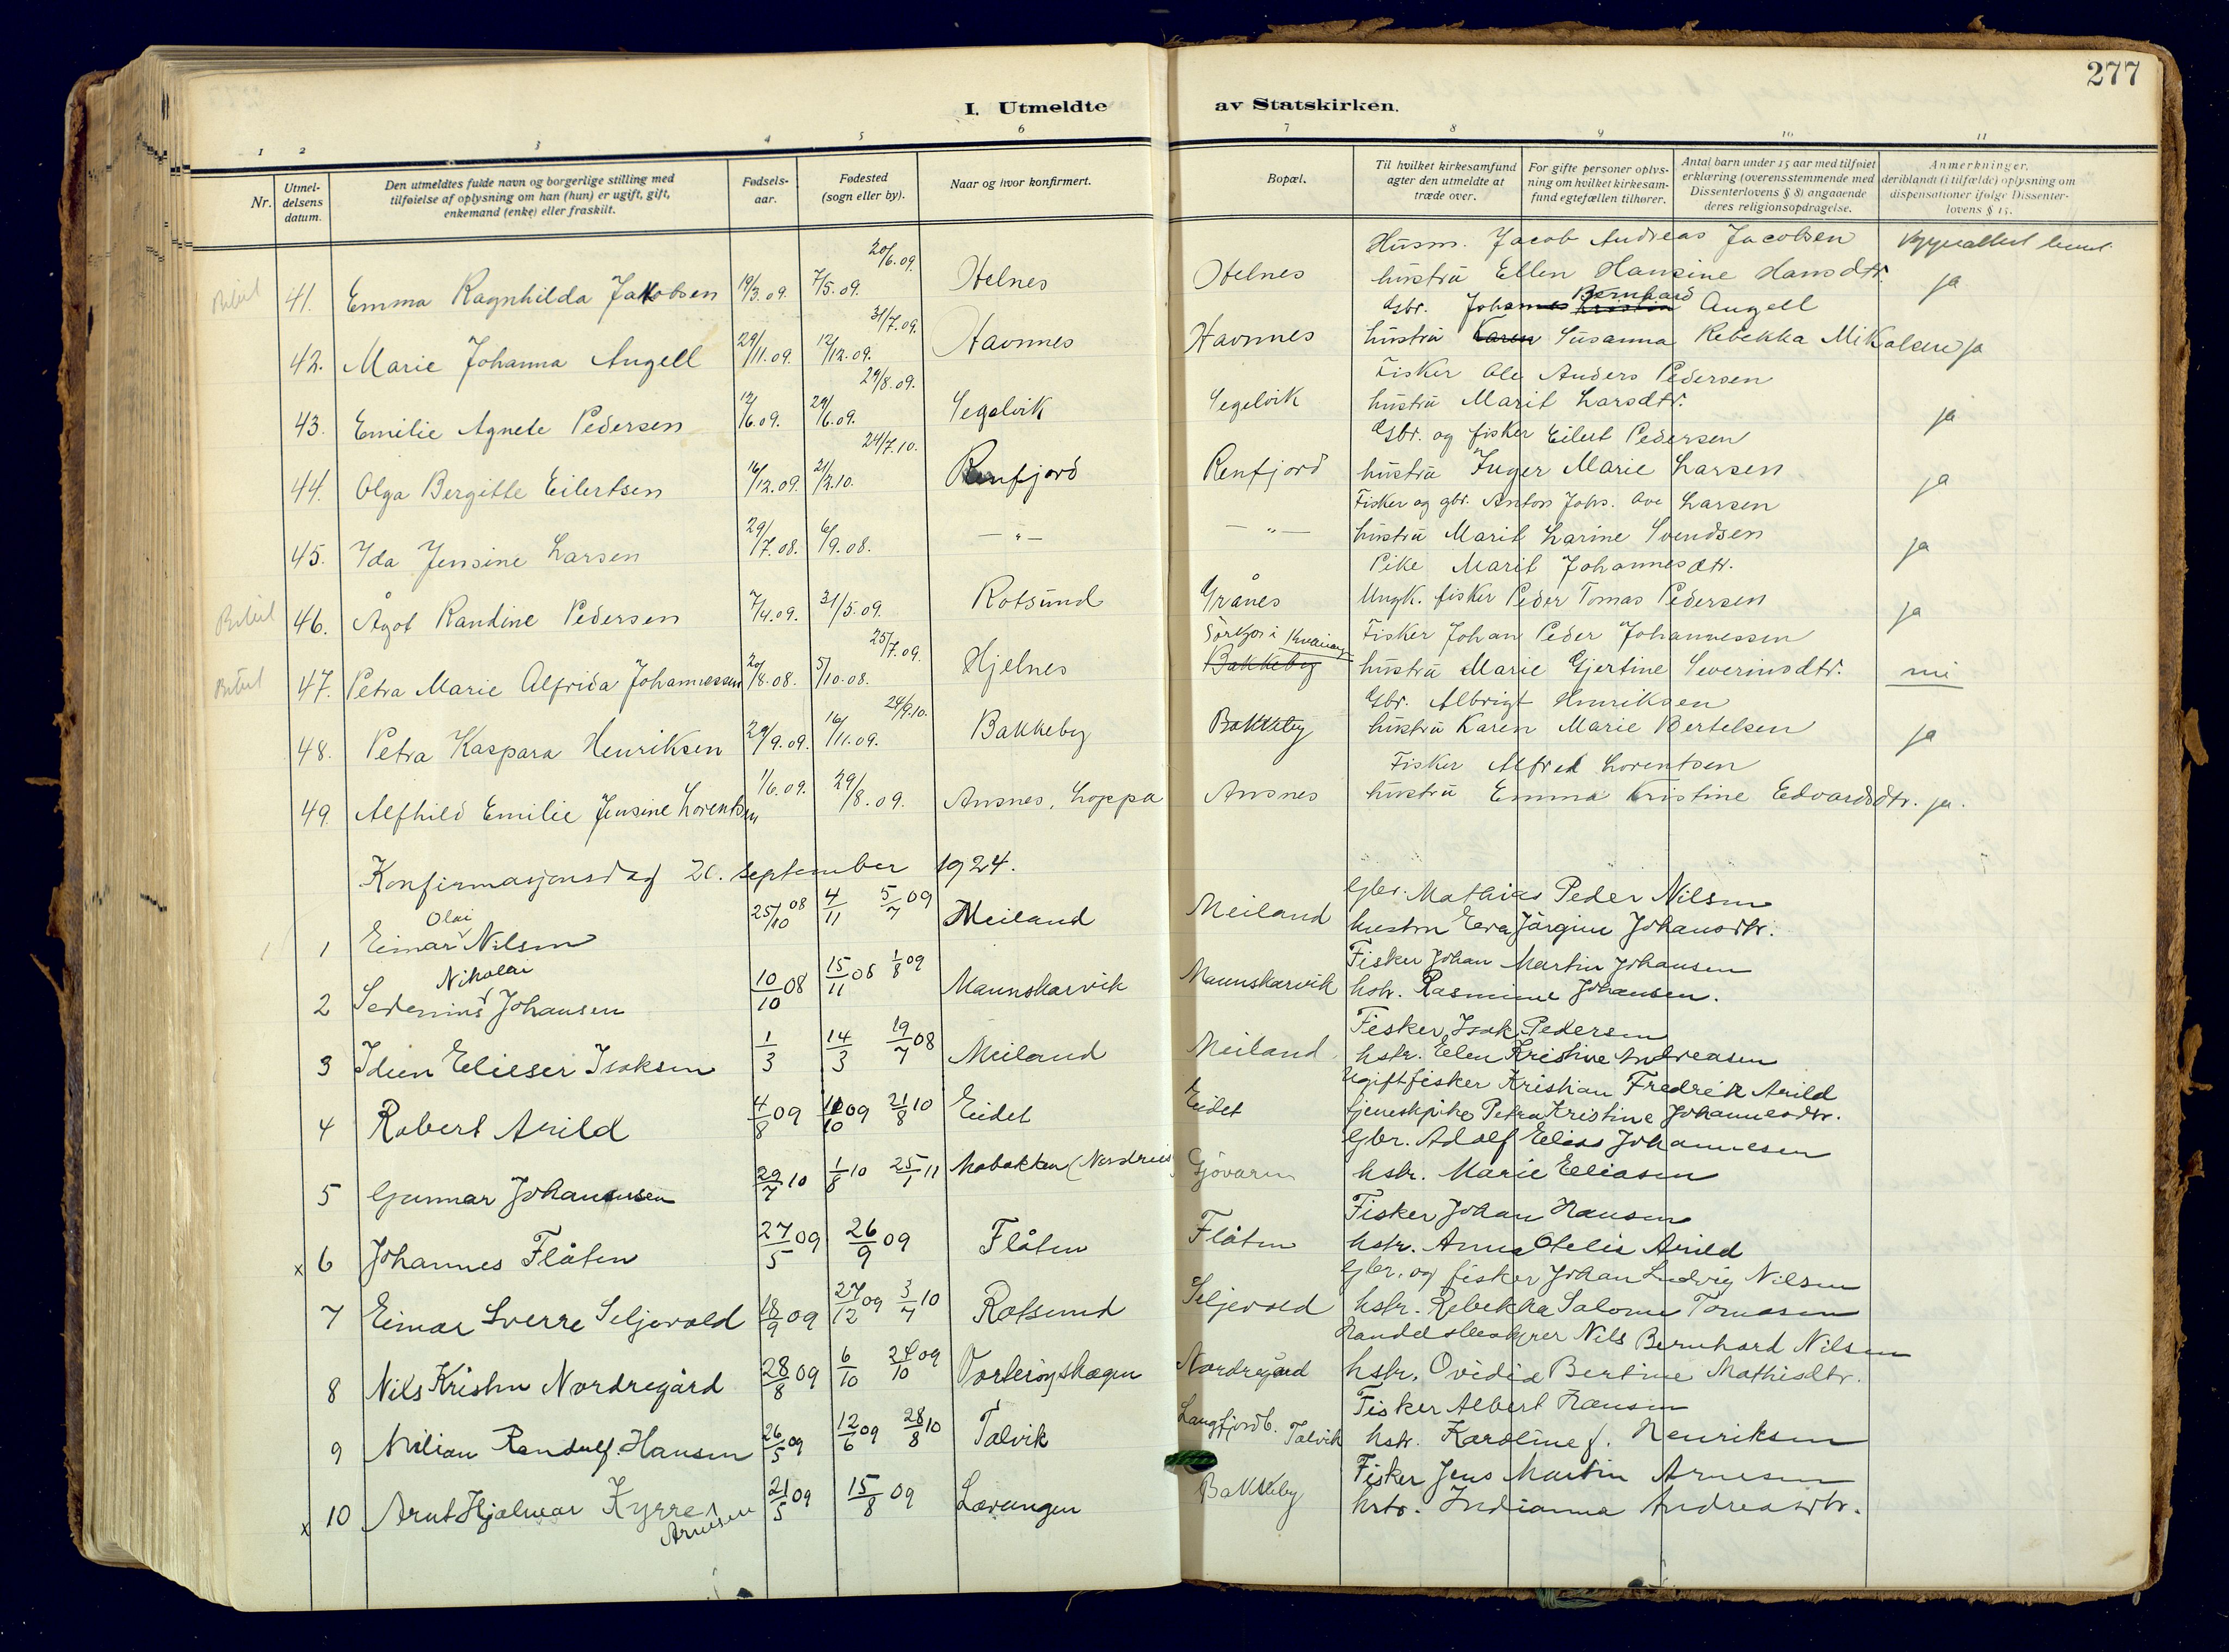 277
I. Utmeldte av Statskirken.
1 2 3 4 5 6 7 8 9 10 11
Nr.
Utmel-
delsens
datum.
Den utmeldtes fulde navn og borgerlige stilling med
tilføielse af oplysning om han (hun) er ugift, gift,
enkemand (enke) eller fraskilt.
Fødsels-
aar.
Fødested
(sogn eller by).
Naar og hvor konfirmert.
Bopæl.
Til hvilket kirkesamfund
agter den utmeldte at
træde over.
For gifte personer oplys-
ning om hvilket kirkesam-
fund egtefællen tilhører.
Antal barn under 15 aar med tilføiet
erklæring (overensstemmende med
Dissenterlovens § 8) angaaende
deres religionsopdragelse.
Anmerkninger,
deriblandt (i tilfælde) oplysning om
dispensationer ifølge Dissenter-
lovens § 15.
Husm. Jacob Andreas Jacobsen
41. Emma Ragnhilda Jakobsen 19/3.09. 7/5.09. 20/6.09. Helnes Helnes hustru Ellen Hansine Hansdtr. ja
Gbr. Johannes Kristin Bernhard Angell
42. Marie Johanna Angell 29/11.09. 12/12.09. 31/7.09. Havnnes Havnnes hustru Karen Susanna Rebekka Mikalsen ja
Fisker Ole Anders Pedersen
43. Emilie Agnete Pedersen 12/6.09. 29/6.09. 29/8.09. Segelvik Segelvik hustru Marit Larsdtr. ja
Gbr. og fisker Eilert Pedersen
44. Olga Bergitte Eilertsen 16/12.09. 21/2.10. 24/7.10. Renfjord Renfjord hustru Inger Marie Larsen ja
Fisker og gbr. Anton Johs. Ove Larsen
45. Ida Jensine Larsen 29/7.08. 6/9.08. — " — — " — hustru Marit Larine Svendsen ja
Pike Marit Johannesdtr.
46. Ågot Randine Pedersen 7/4.09. 31/5.09. Rotsund Grånes Ungk. fisker Peder Tomas Pedersen ja
Sørkjos i Kvænang Fisker Johan Peder Johannessen
47. Petra Marie Alfrida Johannessen 20/8.08. 5/10.08. 25/7.09. Hjelnes Bakkeby hustru Marie Gjertine Severinsdtr. nei
Gbr. Albrigt Henriksen
48. Petra Kaspara Henriksen 29/9.09. 16/11.09. 24/9.10. Bakkeby Bakkeby hustru Karen Marie Bertelsen ja
Fisker Alfred Lorentsen
49. Alfhild Emilie Jensine Lorentsen 1/6.09. 29/8.09. Ansnes, Loppa Ansnes hustru Emma Kristine Edvardsdtr. ja.
Konfirmasjonsdag 20. september 1924.
Gbr. Mathias Peder Nilsen
1 Einar Olai Nilsen 25/10 08 4/11 5/7 09 Meiland Meiland hustru Eva Jørgine Johansdtr.
Fisker Johan Martin Johansen
2 Sedenius Nikolai Johansen 10/10 08 15/11 08 1/8 09 Maunskarvik Maunskarvik hstr. Rasmine Johansen.
Fisker Isak Pedersen
3 Idun Elieser Isaksen 1/3 14/3 19/7 08 Meiland Meiland hstr. Elen Kristine Andreasen
Ugift fisker Kristian Fredrik Arild
4 Robert Arild 4/8 09 10/10 09 21/8 10 Eidet Eidet tjenestpike Petra Kristine Johannesdtr.
Gbr. Adolf Elias Johannesen
5 Gunnar Johannesen 29/7 10 1/8 10 25/1 11 Gjøvaren hstr. Marie Eliasen
Fisker Johan Hansen
x 6 Johannes Flåten 27/5 09 26/9 09 Flåten Flåten hstr. Anna Otelie Arild
Gbr. og fisker Johan Ludvig Nilsen
7 Einar Sverre Seljevold 18/9 09 27/12 09 3/7 10 Rotsund Seljevold hstr. Rebekka Salome Tomasen
Handelsbestyrer Nils Bernhard Nilsen
8 Nils Kristen Nordregård 28/8 09 6/10 24/10 09 Vorterøyskagen Nordregård hstr. Ovidia Bertine Mathisdtr.
Fisker Albert Hansen
9 Milian Randulf Hansen 26/5 09 12/6 09 28/8 10 Talvik Langfjordb. Talvik hstr. Karoline f. Henriksen
Fisker Jens Martin Arnesen
x 10 Arnt Hjalmar Kyrre Arnesen 21/5 09 15/8 09 Lavangen Bakkeby hstr. Indianna Andreasdtr.